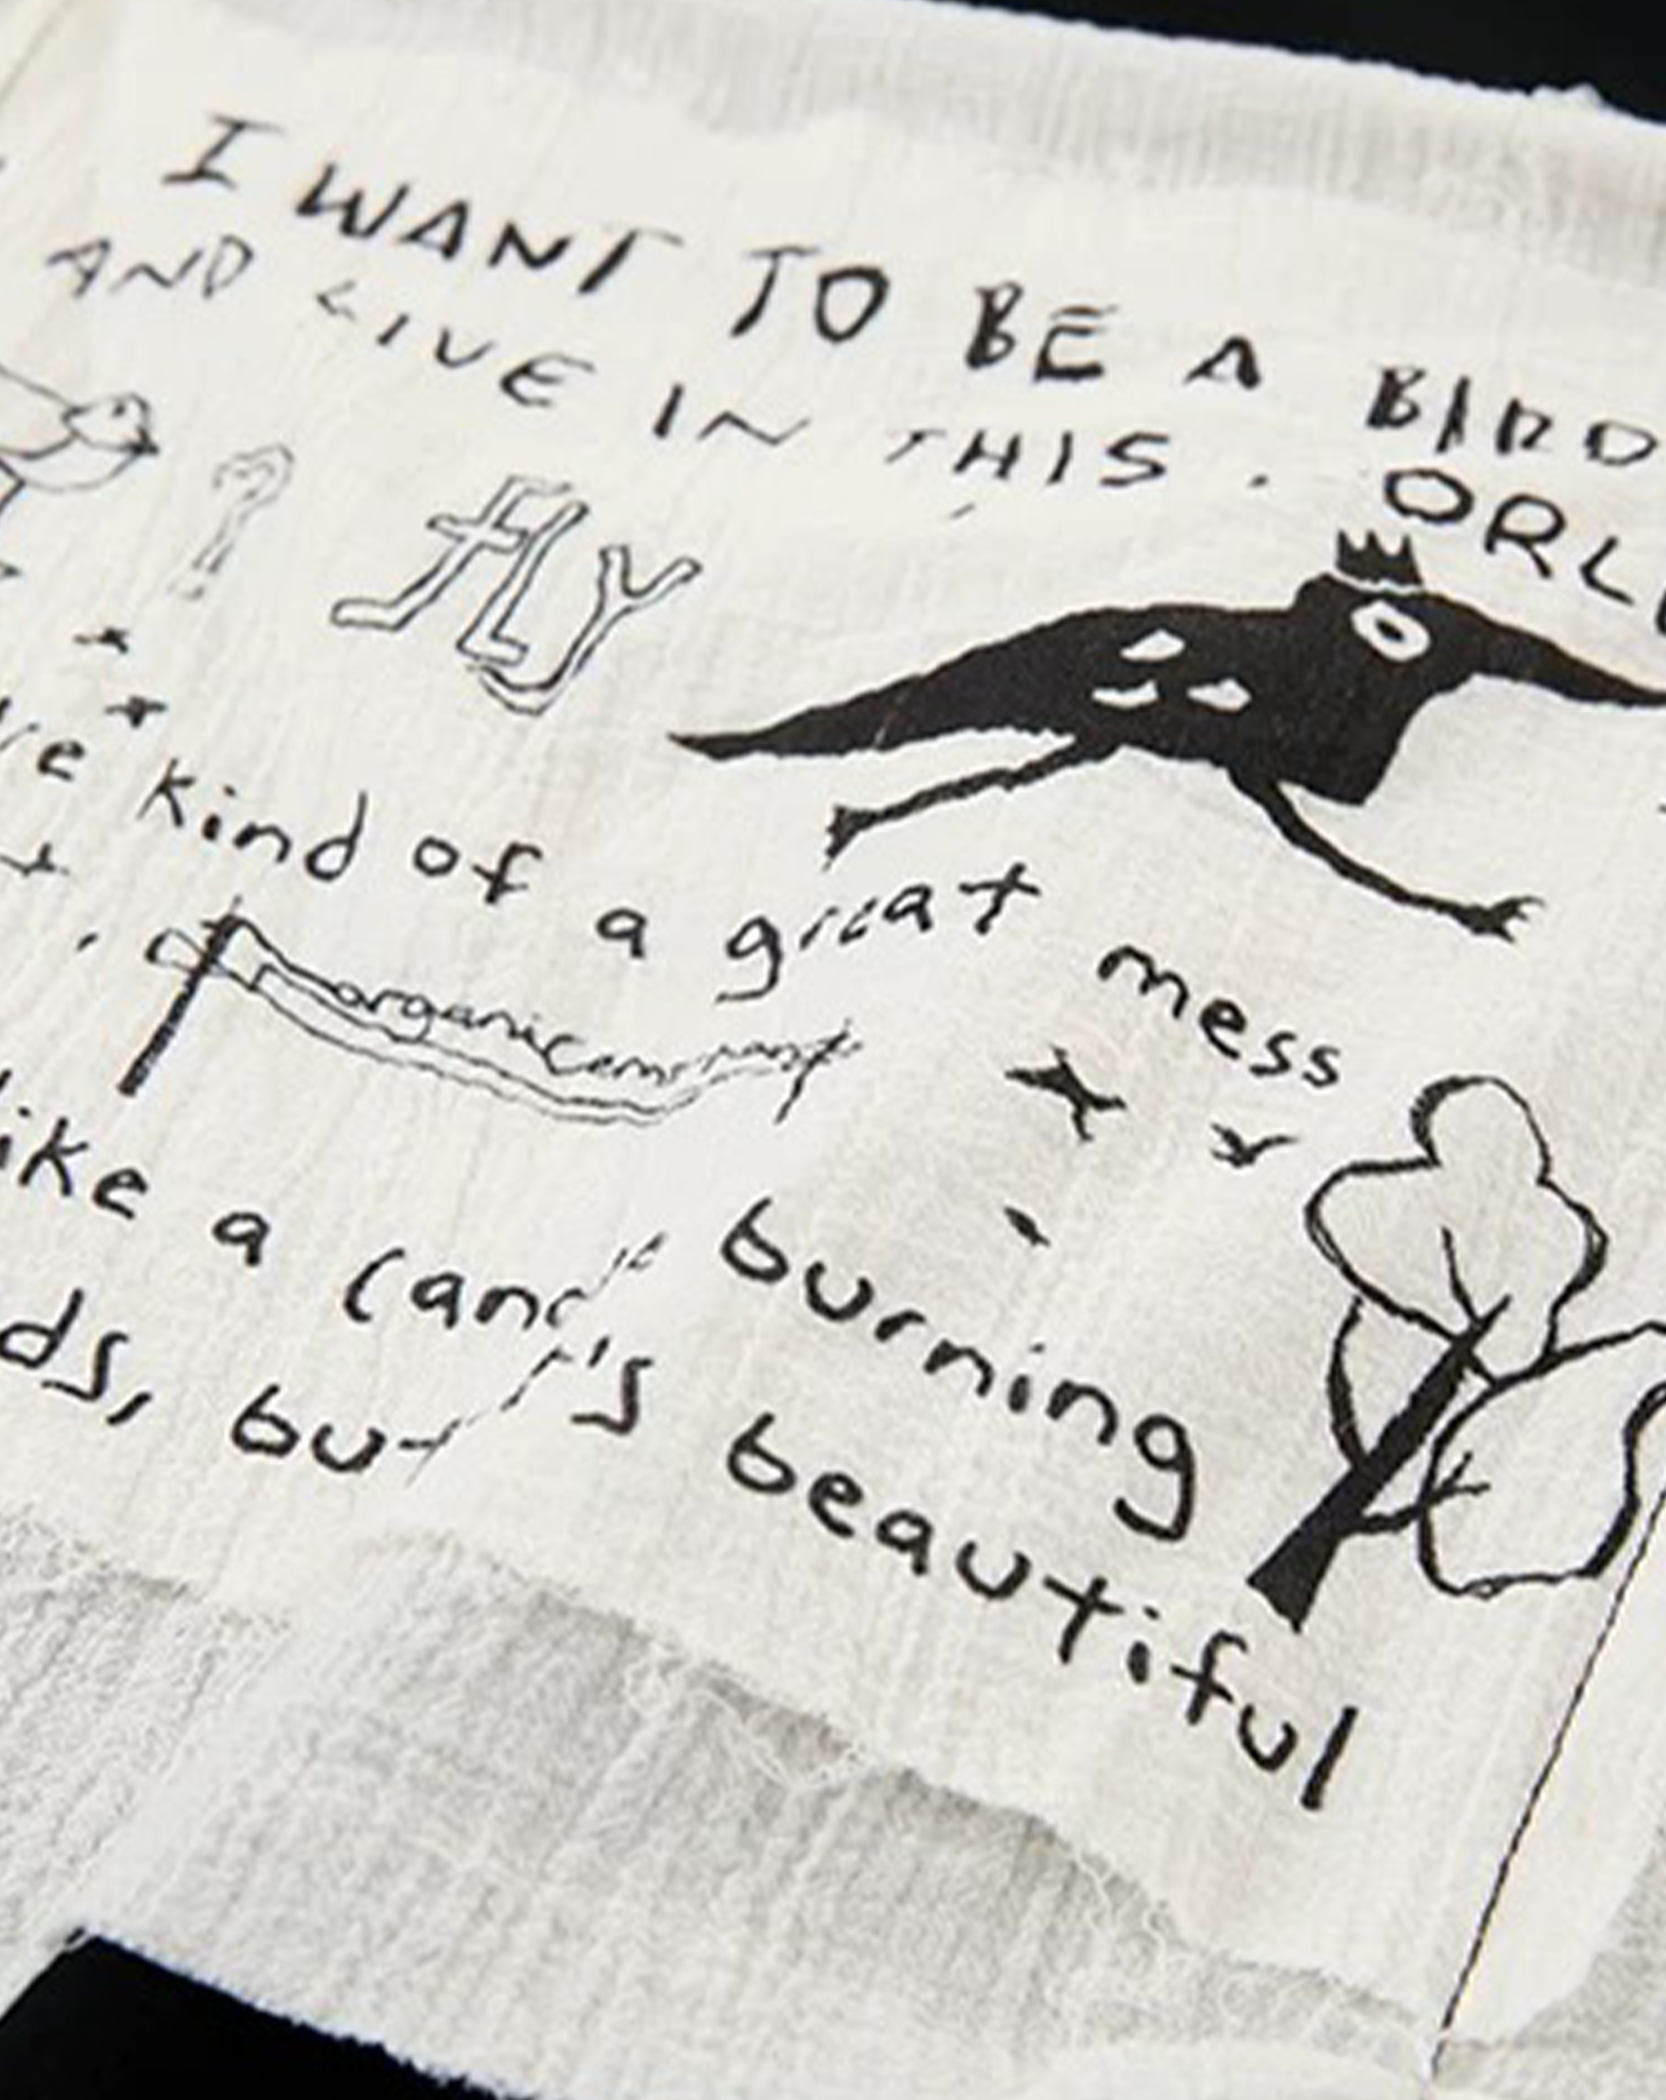 I WANT TO BE A BIRD
AND LIVE IN THIS.
ORL
?
fLY
ve kind of a great mess
organic
like a candle burning
ds, but it's beautiful